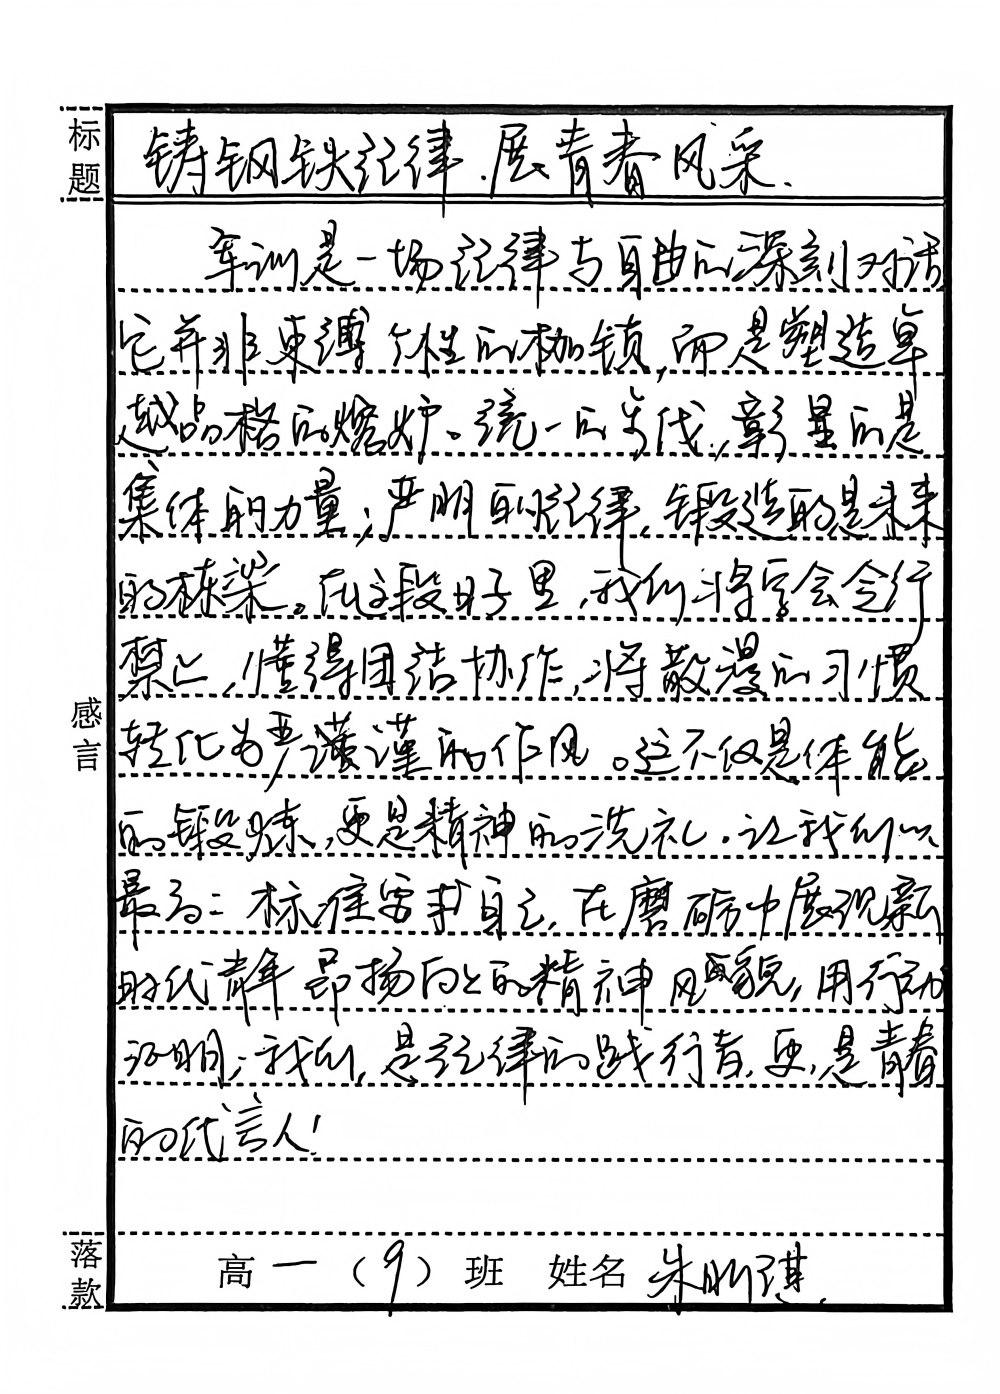 标题
铸钢铁纪律.展青春风采.
军训是一场纪律与自由的深刻对话
它并非束缚个性的枷锁,而是塑造卓
越品格的熔炉。统一的步伐,彰显的是
集体的力量;严明的纪律,锻造的是未来
的栋梁。在这段日子里,我们将学会令行
禁止,懂得团结协作,将散漫的习惯
转化为严谨的作风。这不仅是体能
的锻炼,更是精神的洗礼.让我们以
最高标准要求自己,在磨砺中展现新
时代青年昂扬向上的精神风貌,用行动
证明;我们,是纪律的践行者,更,是青春
的代言人!
感言
落款
高一(9)班 姓名 朱